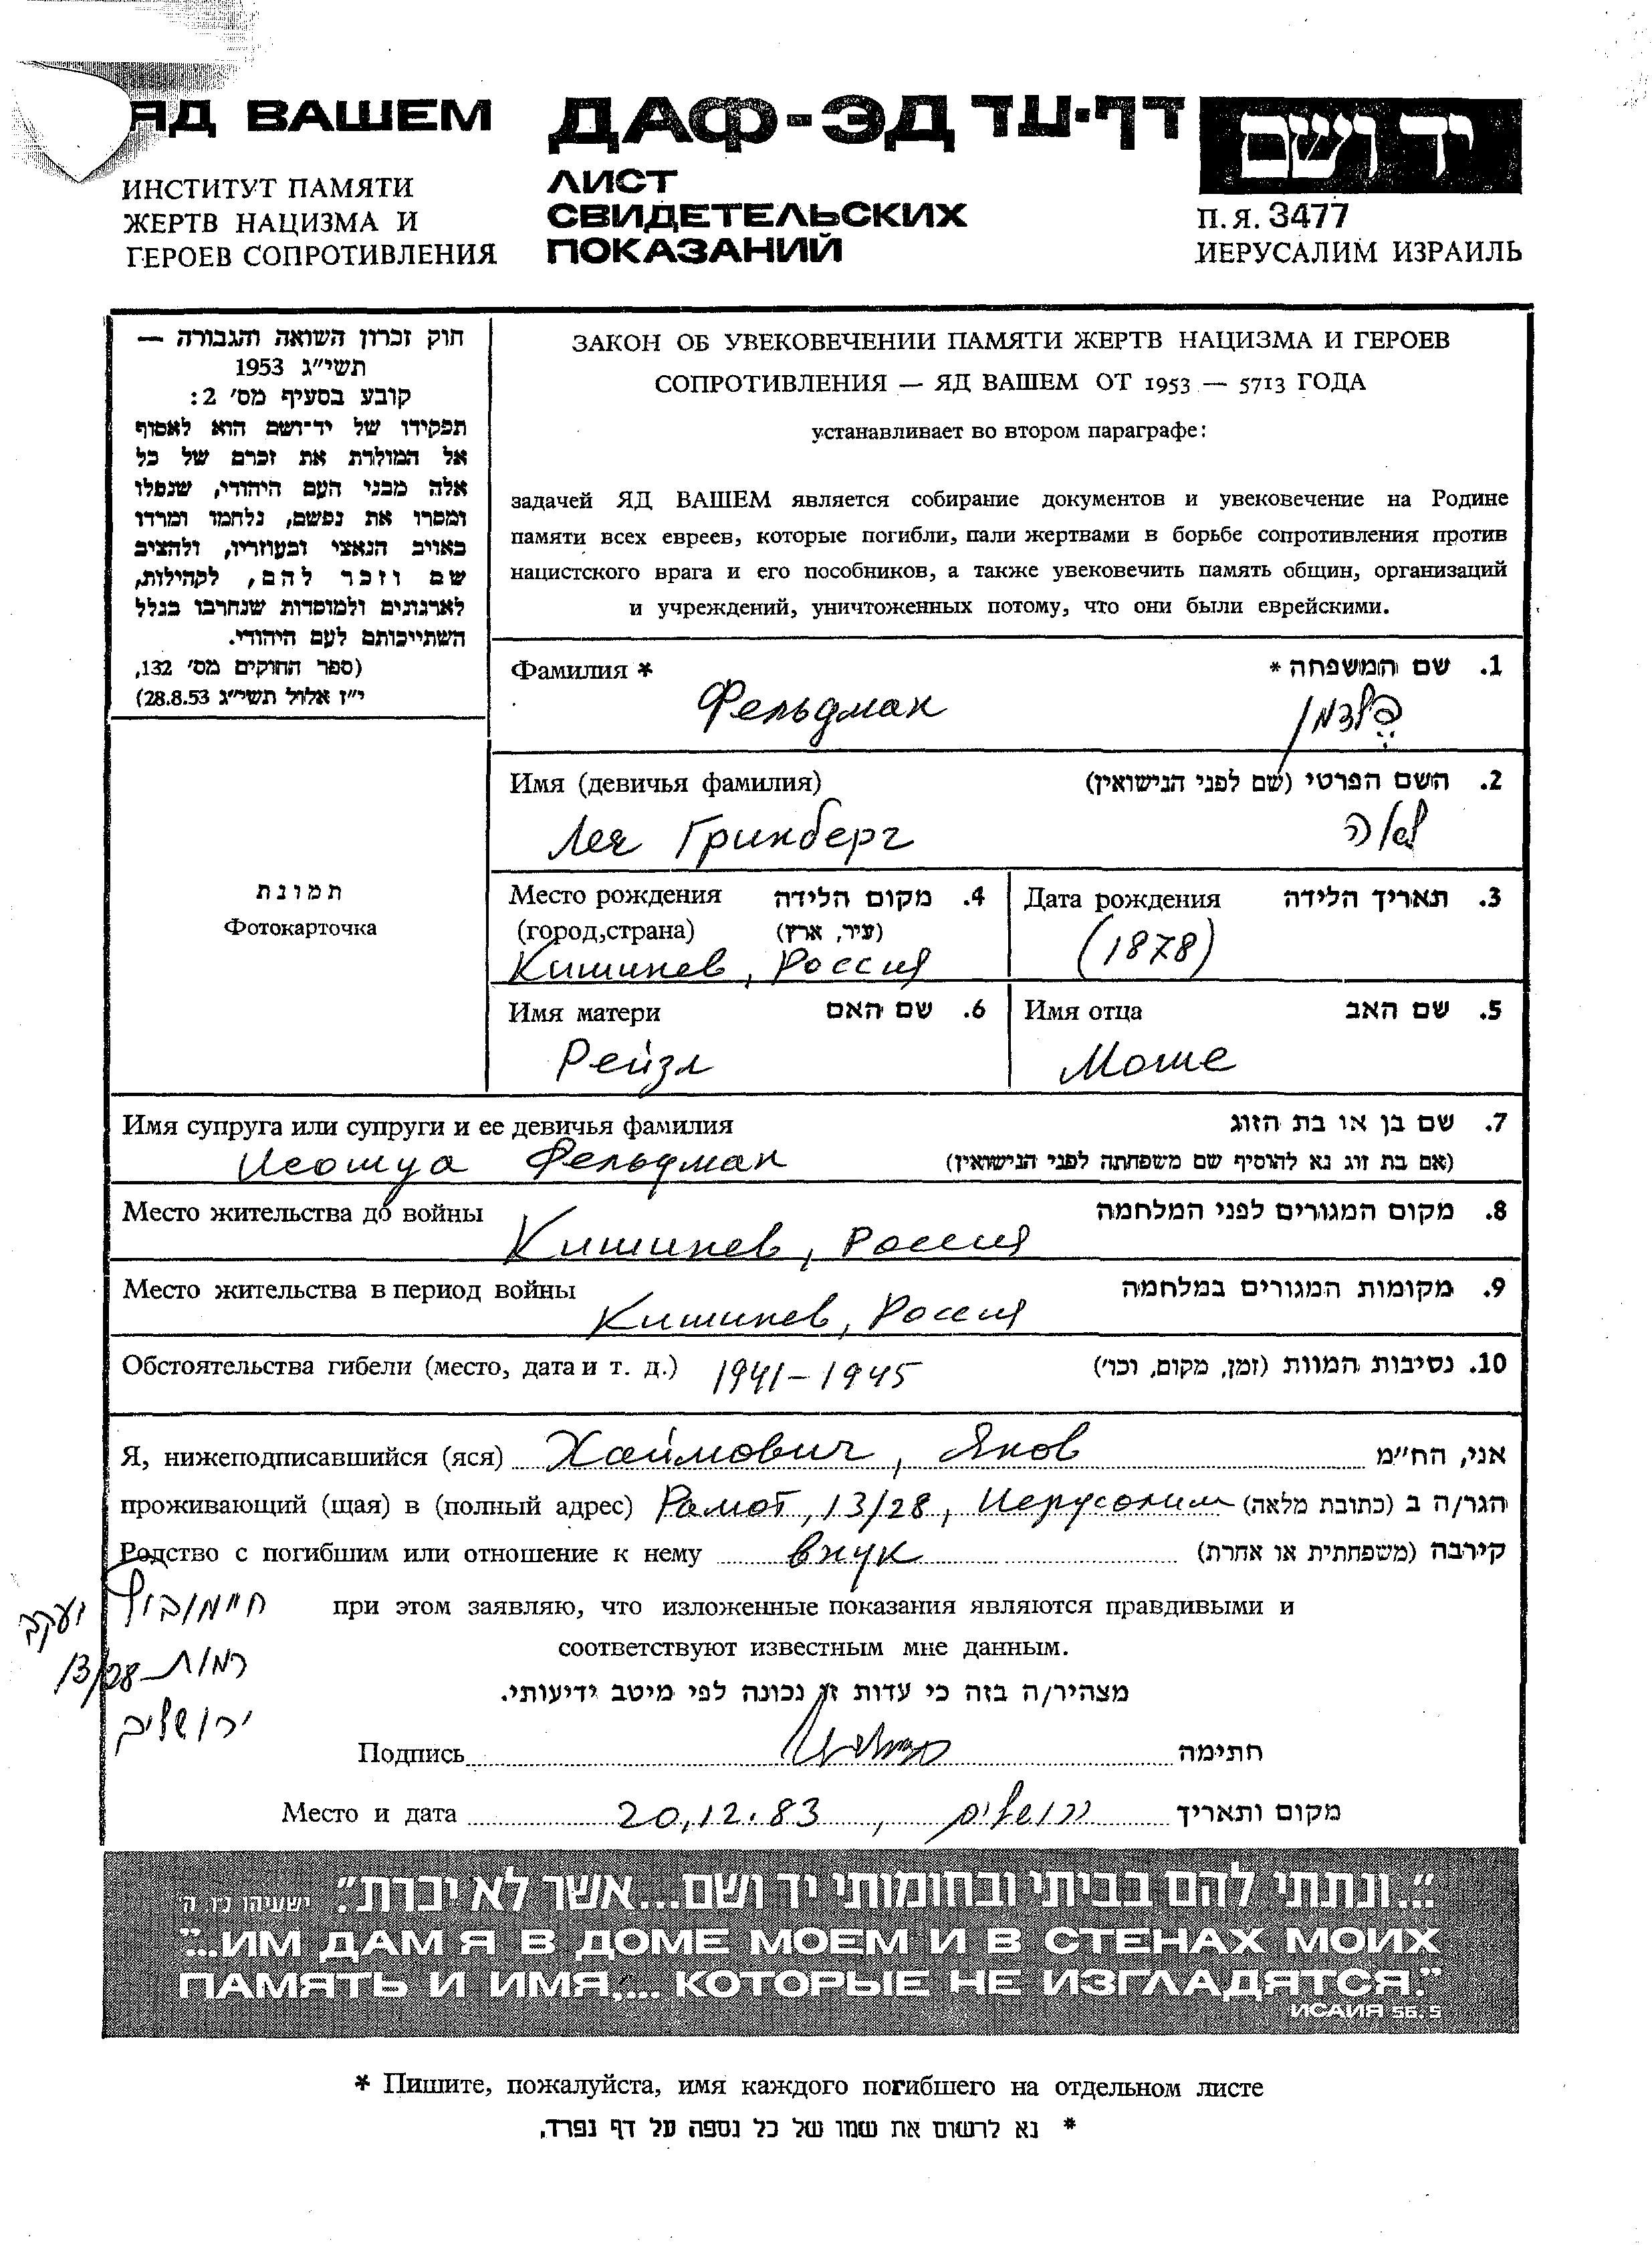 ЯД ВАШЕМ
ИНСТИТУТ ПАМЯТИ
ЖЕРТВ НАЦИЗМА И
ГЕРОЕВ СОПРОТИВЛЕНИЯ
ДАФ-ЭД דף-עד
ЛИСТ
СВИДЕТЕЛЬСКИХ
ПОКАЗАНИЙ
יד ושם
П.Я. 3477
ИЕРУСАЛИМ ИЗРАИЛЬ
חוק זכרון השואה והגבורה —
תשי"ג 1953
קובע בסעיף מס' 2:
תפקידו של יד-ושם הוא לאסוף
אל המולדת את זכרם של כל
אלה מבני העם היהודי, שנפלו
ומסרו את נפשם, נלחמו ומרדו
באויב הנאצי ובעוזריו, ולהציב
שם וזכר להם, לקהילות,
לארגונים ולמוסדות שנחרבו בגלל
השתייכותם לעם היהודי.
(ספר החוקים מס' 132,
י"ז אלול תשי"ג 28.8.53)
ЗАКОН ОБ УВЕКОВЕЧЕНИИ ПАМЯТИ ЖЕРТВ НАЦИЗМА И ГЕРОЕВ
СОПРОТИВЛЕНИЯ — ЯД ВАШЕМ ОТ 1953 — 5713 ГОДА
устанавливает во втором параграфе:
задачей ЯД ВАШЕМ является собирание документов и увековечение на Родине
памяти всех евреев, которые погибли, пали жертвами в борьбе сопротивления против
нацистского врага и его пособников, а также увековечить память общин, организаций
и учреждений, уничтоженных потому, что они были еврейскими.
Фамилия * 1. שם המשפחה *
Фельдман פלדמן
Имя (девичья фамилия) 2. השם הפרטי (שם לפני הנישואין)
Лея Гринберг לאה
תמונת
Фотокарточка
Место рождения 4. מקום הלידה
(город,страна) (עיר, ארץ)
Кишинев, Россия
Дата рождения 3. תאריך הלידה
(1878)
Имя матери 6. שם האם
Рейзл
Имя отца 5. שם האב
Моше
Имя супруга или супруги и ее девичья фамилия 7. שם בן או בת הזוג
Иешуа Фельдман (אם בת זוג נא להוסיף שם משפחתה לפני הנישואין)
Место жительства до войны 8. מקום המגורים לפני המלחמה
Кишинев, Россия
Место жительства в период войны 9. מקומות המגורים במלחמה
Кишинев, Россия
Обстоятельства гибели (место, дата и т. д.) 1941-1945 10. נסיבות המוות (זמן, מקום, וכו')
Я, нижеподписавшийся (яся) Хаймович, Яков אני, הח"מ
проживающий (щая) в (полный адрес) Рамот, 13/28, Иерусолим הגר/ה ב (כתובת מלאה)
Родство с погибшим или отношение к нему внук קירבה (משפחתית או אחרת)
חיימוביץ יעקב
רמות 13/28
ירושלים
при этом заявляю, что изложенные показания являются правдивыми и
соответствуют известным мне данным.
מצהיר/ה בזה כי עדות זו נכונה לפי מיטב ידיעותי.
Подпись חתימה
Место и дата 20.12.83, ירושלים מקום ותאריך
"...ונתתי להם בביתי ובחומותי יד ושם...אשר לא יכרת". ישעיהו נ"ו ה'
"...ИМ ДАМ Я В ДОМЕ МОЕМ И В СТЕНАХ МОИХ
ПАМЯТЬ И ИМЯ.... КОТОРЫЕ НЕ ИЗГЛАДЯТСЯ."
ИСАИЯ 56.5
* Пишите, пожалуйста, имя каждого погибшего на отдельном листе
* נא לרשום את שמו של כל נספה על דף נפרד.